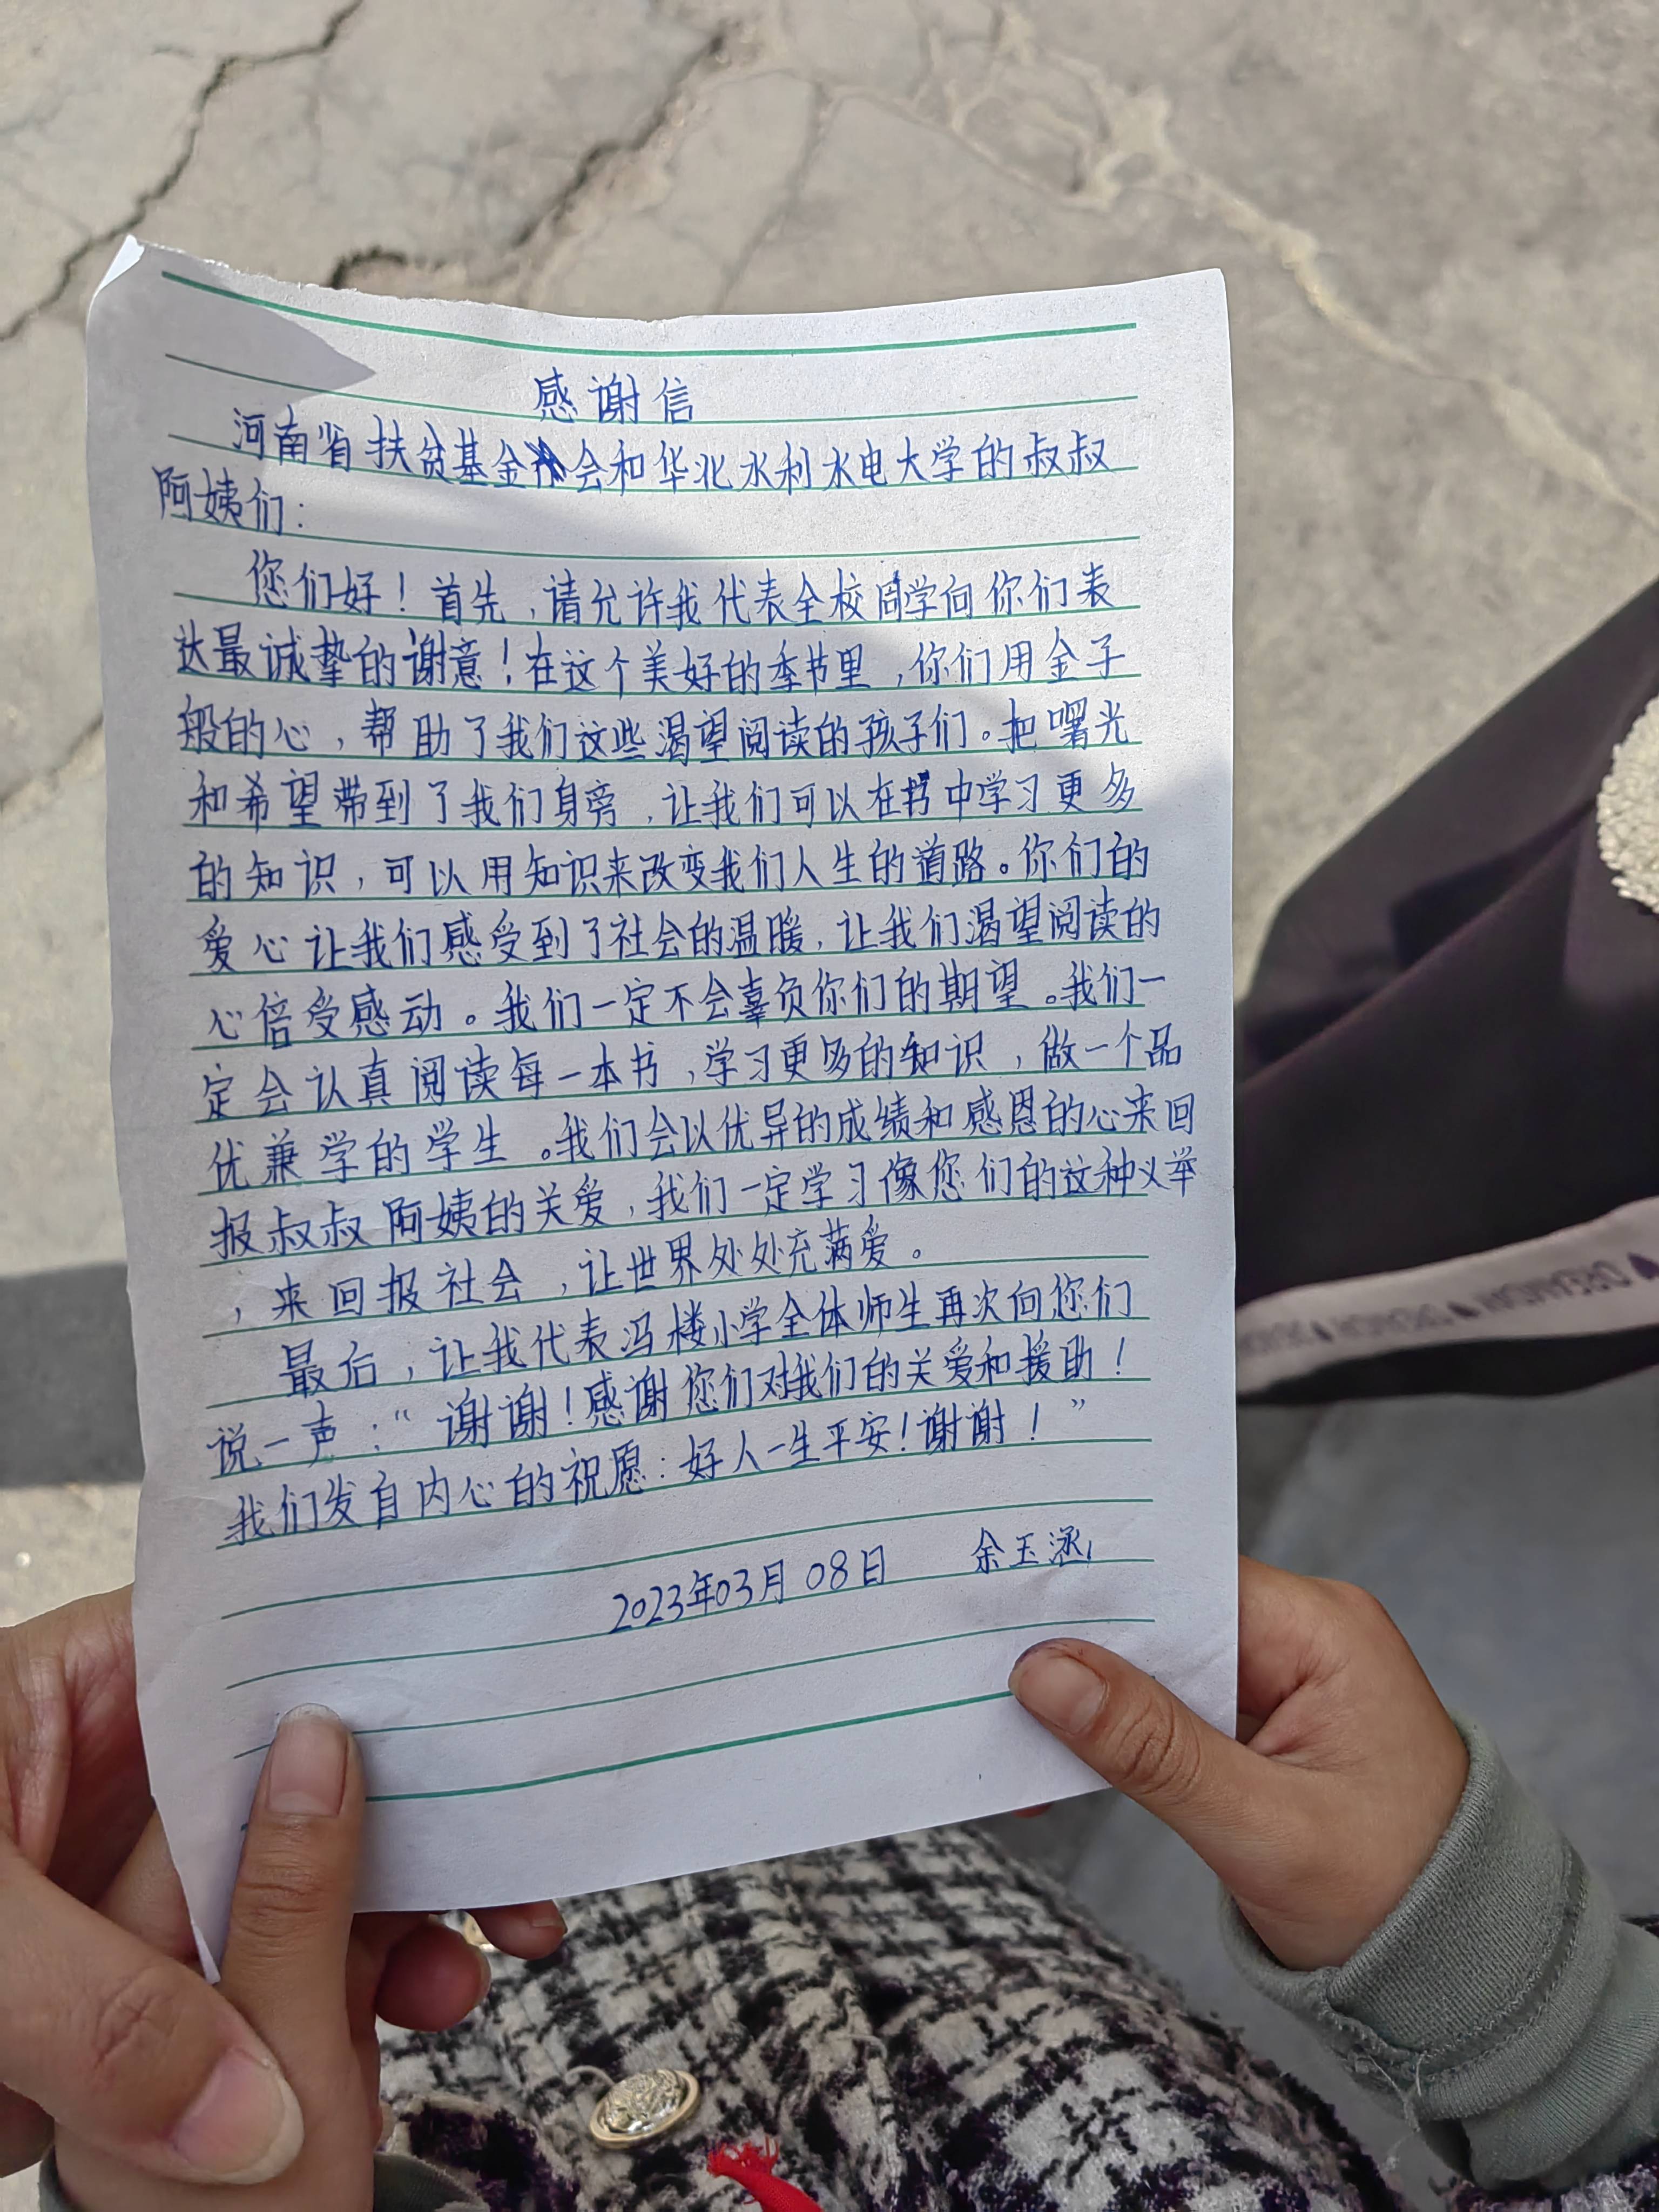 感谢信
河南省扶贫基金会和华北水利水电大学的叔叔
阿姨们：
您们好！首先，请允许我代表全校同学向你们表
达最诚挚的谢意！在这个美好的季节里，你们用金子
般的心，帮助了我们这些渴望阅读的孩子们。把曙光
和希望带到了我们身旁，让我们可以在书中学习更多
的知识，可以用知识来改变我们人生的道路。你们的
爱心让我们感受到了社会的温暖，让我们渴望阅读的
心倍受感动。我们一定不会辜负你们的期望。我们一
定会认真阅读每一本书，学习更多的知识，做一个品
优兼学的学生。我们会以优异的成绩和感恩的心来回
报叔叔阿姨的关爱，我们一定学习像您们的这种义举
，来回报社会，让世界处处充满爱。
最后，让我代表冯楼小学全体师生再次向您们
说一声：“谢谢！感谢您们对我们的关爱和援助！
我们发自内心的祝愿：好人一生平安！谢谢！”
2023年03月08日 余玉涵